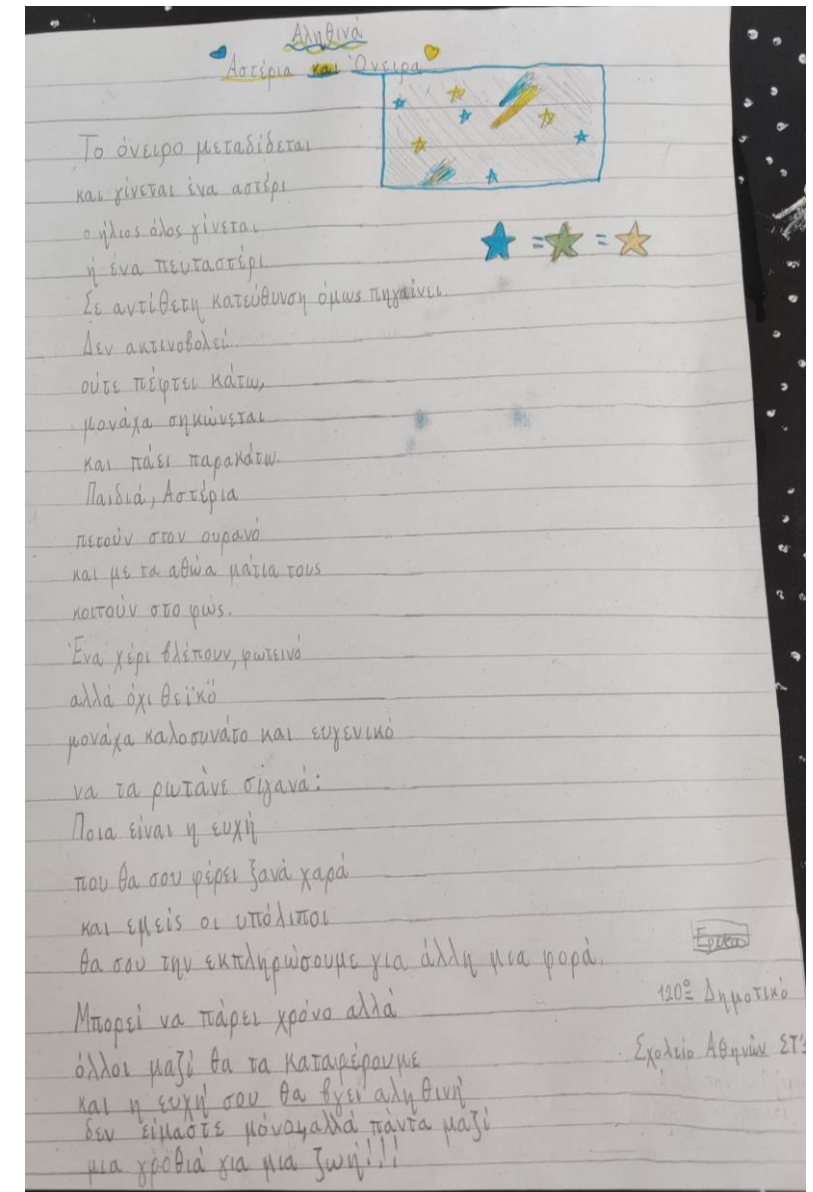 Αληθινά
Αστέρια και Όνειρα
Το όνειρο μεταδίδεται
και γίνεται ένα αστέρι
ο ήλιος όλος γίνεται
ή ένα πευταστέρι
Σε αντίθετη κατεύθυνση όμως πηγαίνει
Δεν ακτινοβολεί
ούτε πέφτει κάτω,
μονάχα σηκώνεται
και πάει παρακάτω.
Παιδιά, Αστέρια
πετούν στον ουρανό
και με τα αθώα μάτια τους
κοιτούν στο φως.
Ένα χέρι βλέπουν, φωτεινό
αλλά όχι θεϊκό
μονάχα καλοσυνάτο και ευγενικό
να τα ρωτάνε σιγανά:
Ποια είναι η ευχή
που θα σου φέρει ξανά χαρά
και εμείς οι υπόλιποι
θα σου την εκπληρώσουμε για άλλη μια φορά.
Μπορεί να πάρει χρόνο αλλά
όλλοι μαζί θα τα καταφέρουμε
και η ευχή σου θα βγει αληθινή
δεν είμαστε μόνοι, αλλά πάντα μαζί
μια γρόθιά για μια ζωή!!!
120ο Δημοτικό
Σχολείο Αθηνών ΣΤ'